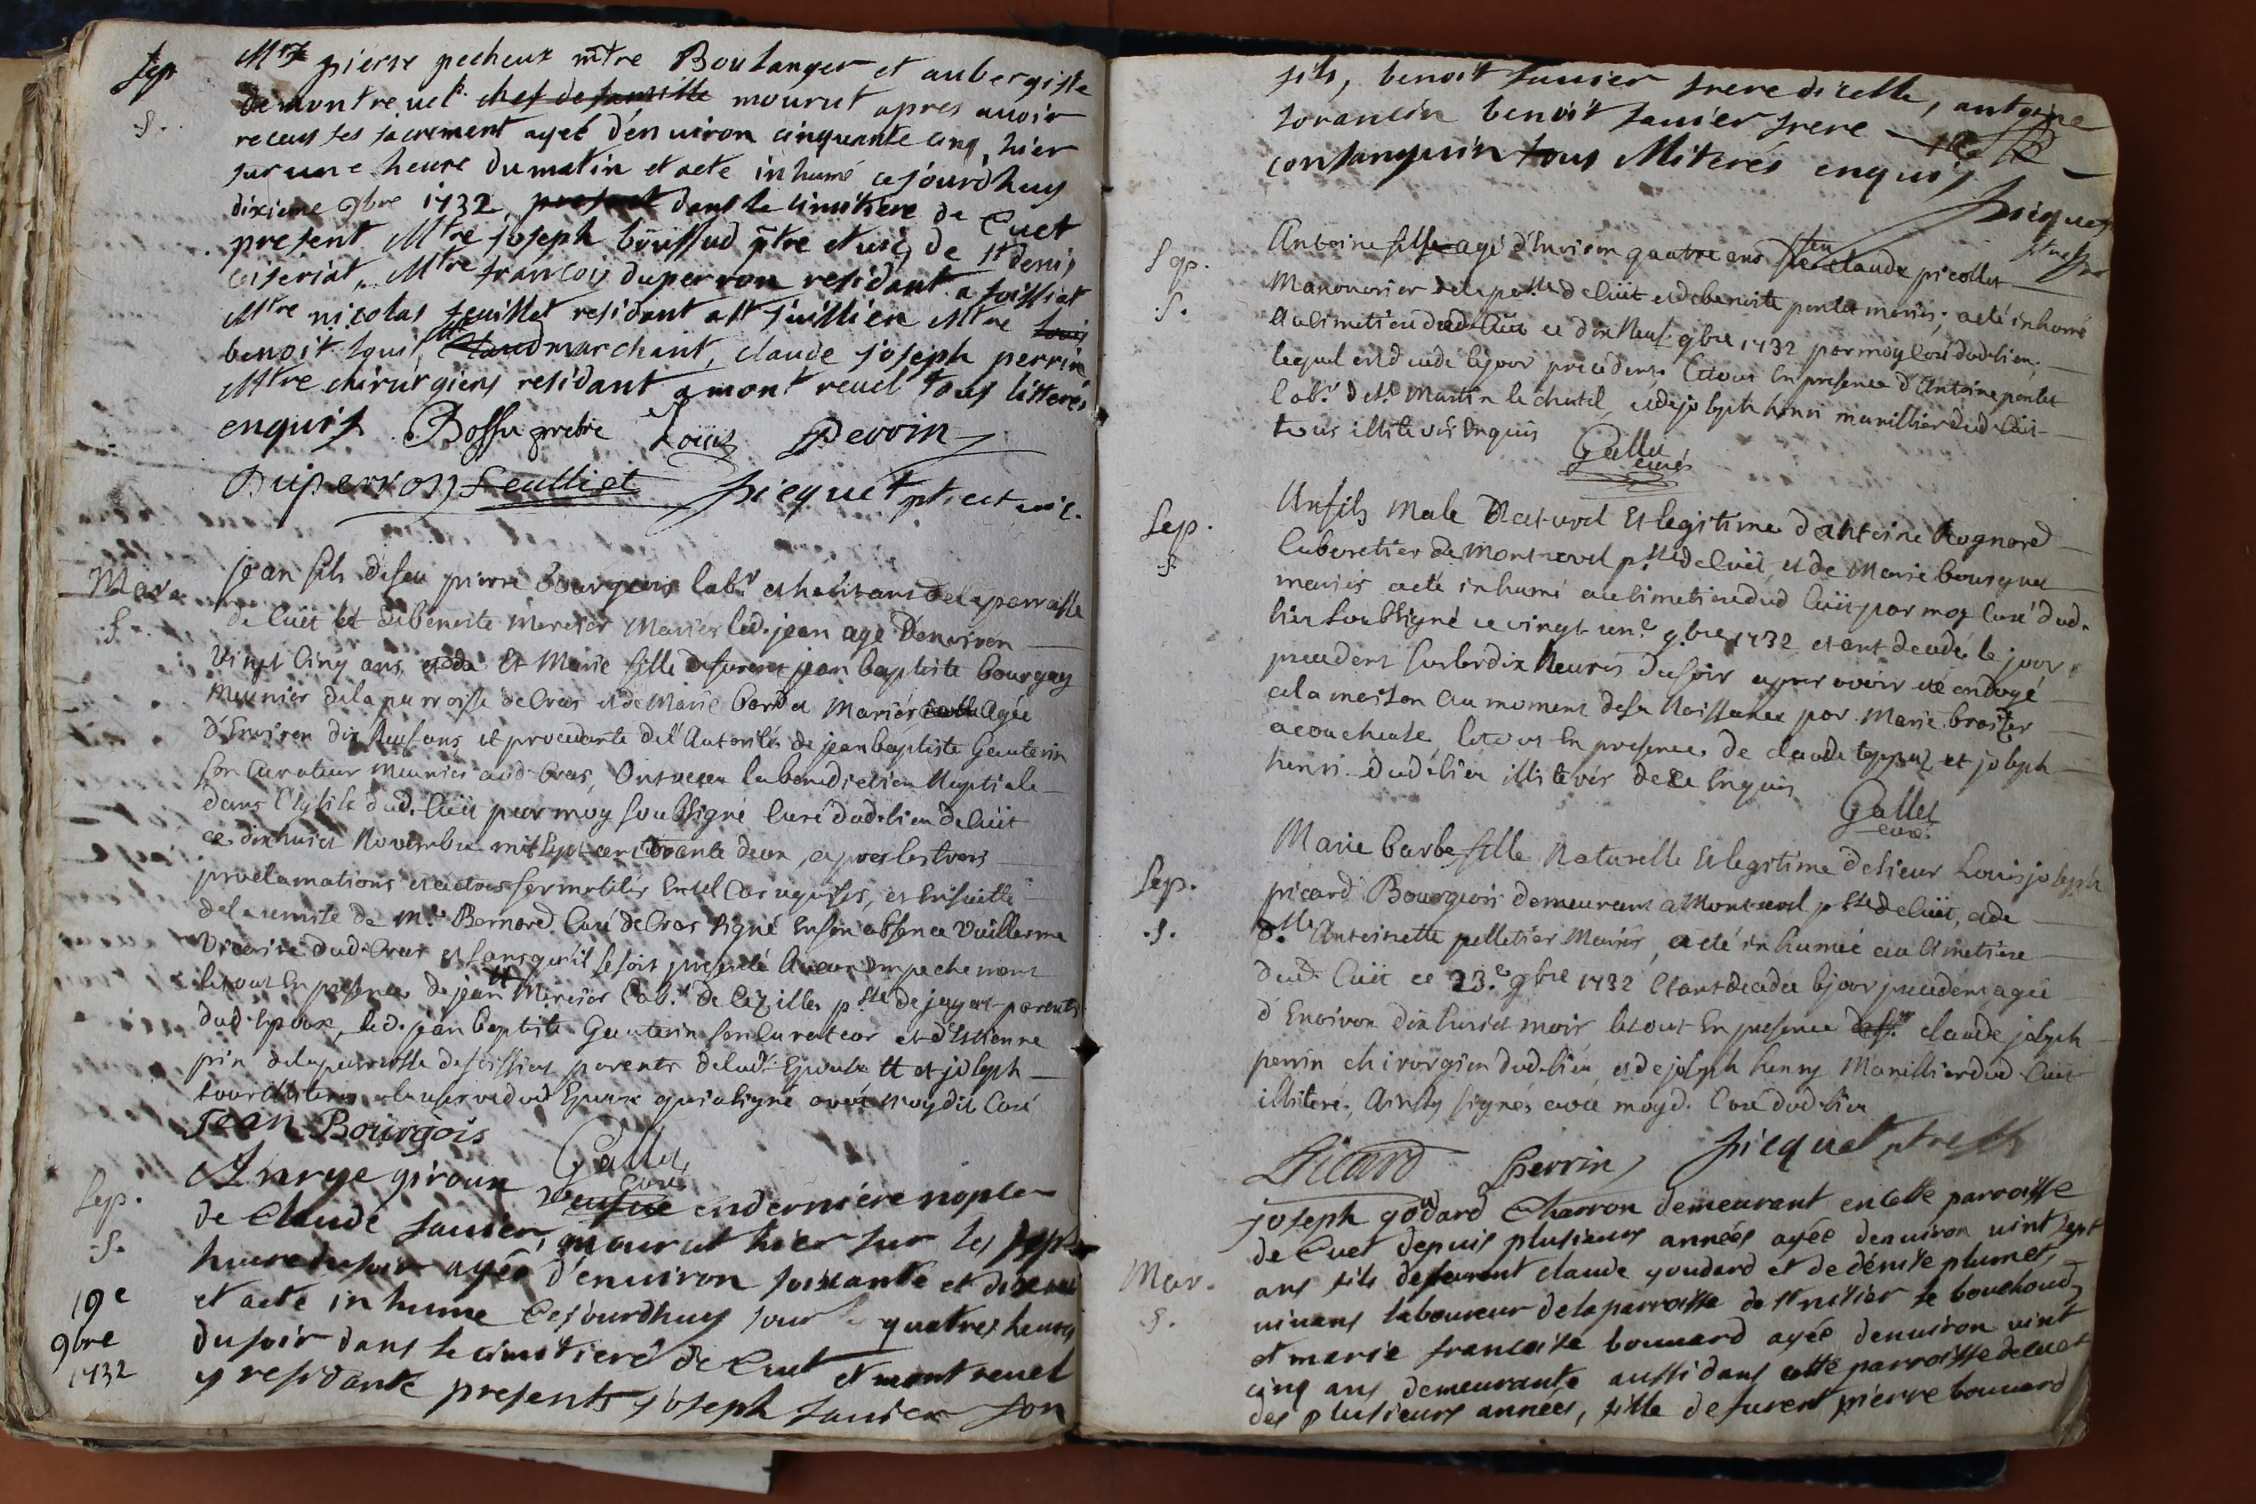 Sep
.S.
Mtre pierre pecheux mtre Boulanger et aubergiste
de montrevel chef de famille mourut apres avoir
receus ses sacrement agé d'environ cinquante cinq, hier
sur une heure du matin et a eté inhumé cejourdhuy
dixieme 9bre 1732, present dans le cimitiere de Cuet
present Mtre joseph boussud ptre et vic de st denis
Mtre françois duperron residant a foissiat
Mtre nicolas feuillet residant a st juillien Mtre louis
benoit marchant, claude joseph perrin
Mtre chirurgiens residant a mont revel tous litterés
enquis Bossu pretre Loüis Perrin
Duperron Feulliet picquet ptre et vic.
Mar.
.S.
jean fils de feu pierre bourgeois labr et habitant de la parroisse
de Cüet et de benoite mercier Mariés led. jean agé d'environ
vingt cinq ans, et Marie fille de furent jean baptiste bourgey
meunier de la parroisse de Cras et de Marie Mariés agée
d'Environ dix neuf ans et procedante de l'Autorité de jean baptiste Gauterin
son Curateur meunier aud. Cras, Ont receu la benediction Nuptiale
dans l'Eglise dud. Cüet par moy soubsigné Curé dud. lieu de Cüet
ce dix huict Novembre mil sept cent trente deux, apres les trois
proclamations et autres formalités En tel Cas requises, et Ensuitte
de la remise de Mre Bernard Curé de Cras signé En son absence Vuillerme
Vicaire dud. Cras et sans qu'il se soit presenté Aucun Empechement
le tout En presence de jean Mercier Labr. de psse de jayat parents
dud. Epoux, led. jean baptiste Gauterin son Curateur et d'Estienne
pin de la parroisse de foissiat parents de lad. Epouse et joseph
tous illiterés a la reserve dud Epoux qui a signé avec moydit Curé
Jean Bourgois
Gallet
Curé
Sep.
.S.
19e
9bre
1732
giroun veufve en derniere nopce
de Claude sauier, mourut hier sur les sept
heure du soir agée d'environ soixante et dix ans
et a eté inhume Cejourdhuy sour les quatres heures
du soir dans le cimitiere de Cuet et mont revel
y residante presents joseph sauier son
fils, benoit sauier frere dicelle, antoine
benoit sauier frere
consanguin tous illiterés enquis
picquet
Sep.
.S.
Antoine fils agé d'Environ quatre ans de feu Claude picollet
Manouvrier de la psse de Cüet et de benoite pontet mariés, a eté inhumé
au Cimetiere dud. Cüet ce dix Neuf 9bre 1732 par moy Curé dud. lieu,
lequel est decedé le jour precedent, le tout En presence d'Antoine pontet
labr. de St Martin le chatel, et de joseph henri marillier dud. Cüet
tous illiterés Enquis
Gallet
curé
Sep.
.S.
Un fils Male Naturel Et legitime d'Antoine Rognard
Cabaretier de Montrevel psse de Cuët, et de Marie bourguet
mariés a eté inhumé au Cimetiere dud Cüet par moy Curé dud.
lieu soubsigné ce vingt un.e 9.bre 1732 etant decedé le jour
precedent sur les dix heures du soir apres avoir eté ondoyé
a la maison au moment de sa Naissance par Marie
acoucheuse le tout En presence de claude et joseph
henri dud. lieu illiterés de ce Enquis
Gallet
curé.
Sep.
.S.
Marie barbe fille Naturelle Et legitime de sieur Louis joseph
picard Bourgeois demeurant a Montrevel psse de Cüet, et de
Dlle Antoinette pelletier Mariés, a eté inhumée au Cimetiere
dud. Cüet ce 23.e 9bre 1732 Etant decedée le jour precedent agée
d'Environ dix huict mois le tout En presence de sr. claude joseph
perrin chirurgien dud. lieu et de joseph henry Marillier dud. Cuet
illiteré, Ainsy signés avec moyd. Curé dud. lieu
Picard Perrin picquet ptre
Mar.
.S.
joseph goudard Charron demeurant en cette parroisse
de Cuet depuis plusieurs années agée denviron vint sept
ans fils de furent claude goudard et de dénise plumet,
vivans laboureur de la parroisse de st nisier le bouchoud,
et marie francoise bouuard agée denviron vint
cinq ans demeurante aussi dans cette parroisse de cuet
des plusieurs années, fille de furent pierre bouuard